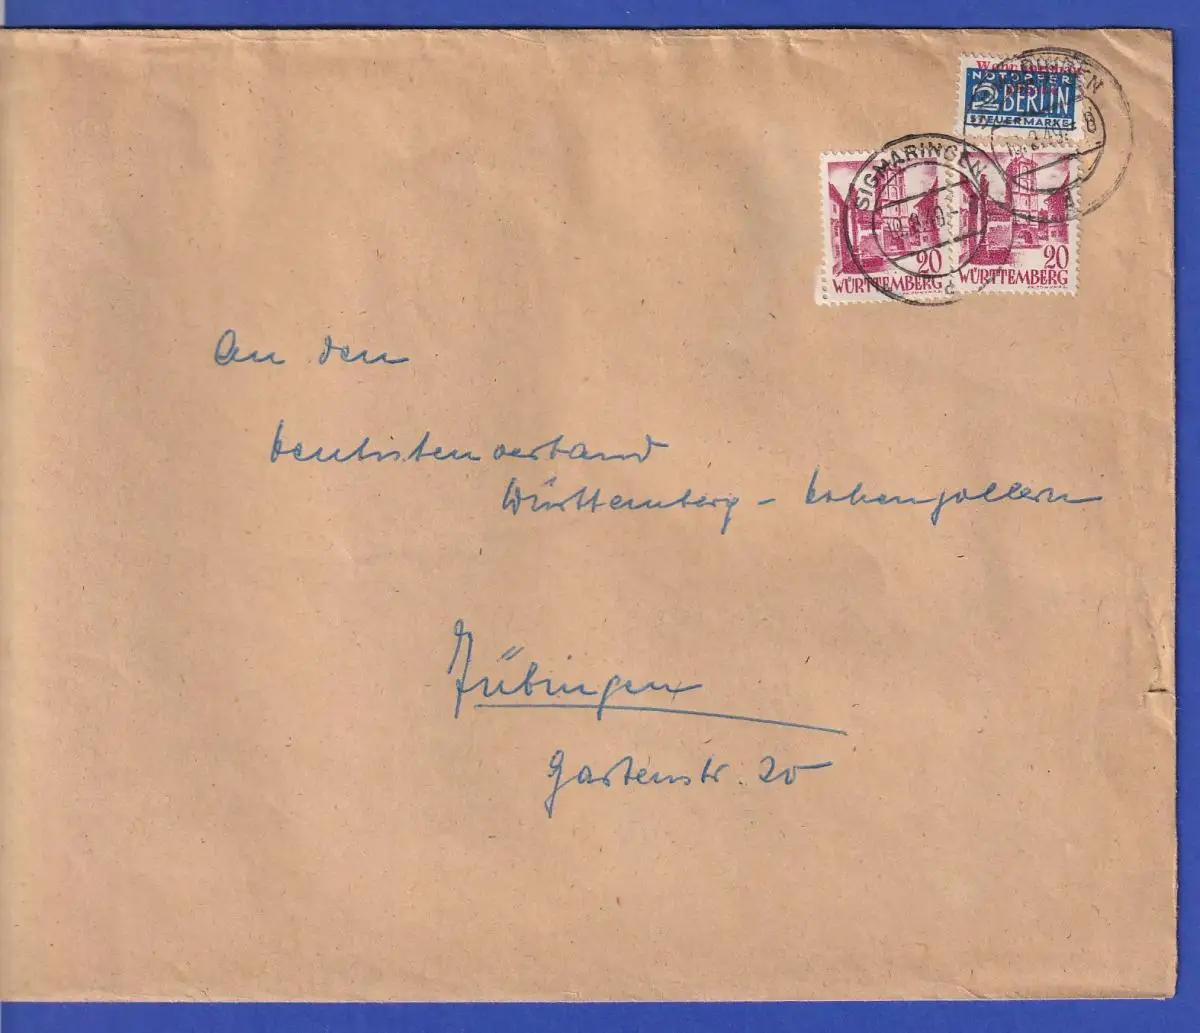 Wohnungsbau
NOTOPFER
2 BERLIN
STEUERMARKE
SIGMARINGEN
SIGMARINGEN
20
WÜRTTEMBERG
20
WÜRTTEMBERG
An den
Dentistenverband
Württemberg - Hohenzollern
Tübingen
Gartenstr. 20